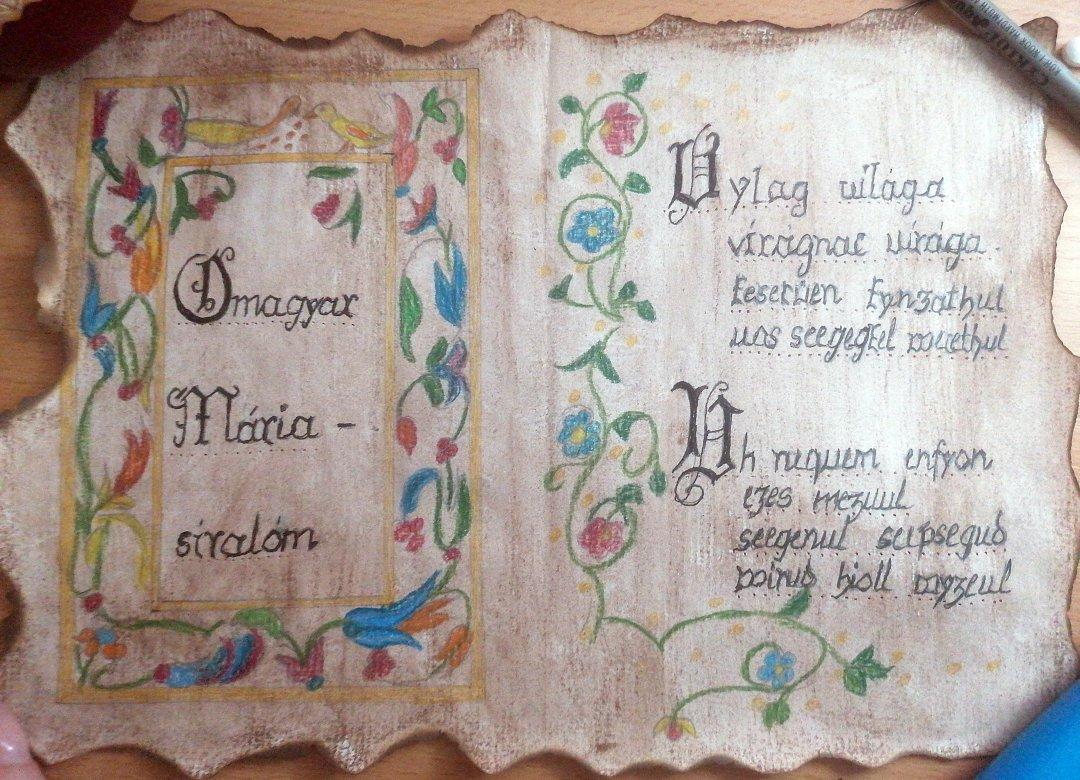 Omagyar
Mária -
siralóm
Vylag uilága
virágnac uirága.
keseruen kynzathul
uos seegegkel veuethul
Uh nequem enfyon
ezes mezuul
seegenul scupsegud
voirud hioll wyzeul